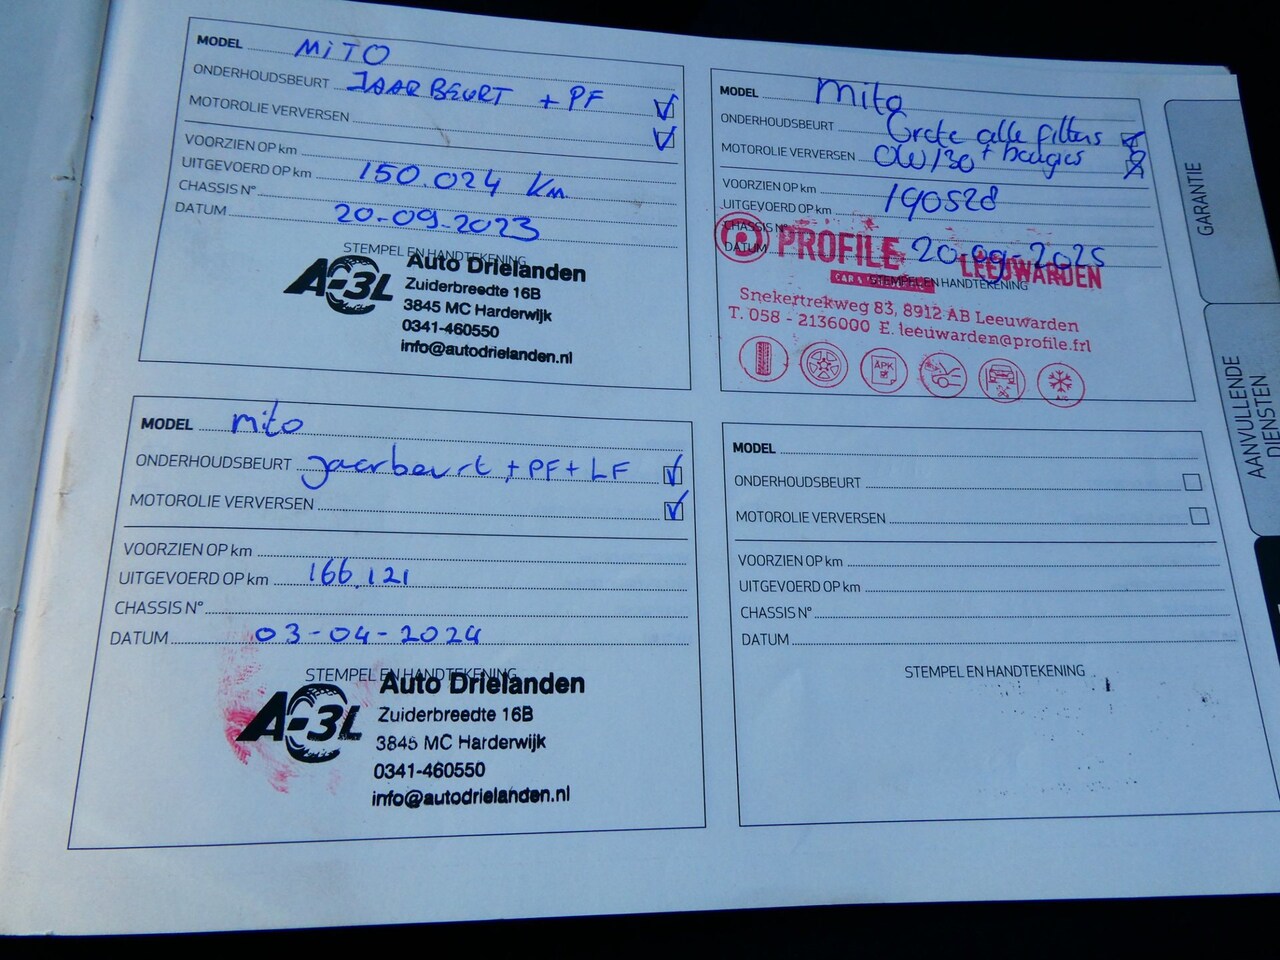 MODEL MiTO
ONDERHOUDSBEURT JAARBEURT + PF
MOTOROLIE VERVERSEN
VOORZIEN OP km
UITGEVOERD OP km 150.024 Km
CHASSIS N°
DATUM 20-09-2023
STEMPEL EN HANDTEKENING
A-3L
Auto Drielanden
Zuiderbreedte 16B
3845 MC Harderwijk
0341-460550
info@autodrielanden.nl
MODEL mito
ONDERHOUDSBEURT jaarbeurt + PF + LF
MOTOROLIE VERVERSEN
VOORZIEN OP km
UITGEVOERD OP km 166.121
CHASSIS N°
DATUM 03-04-2024
STEMPEL EN HANDTEKENING
A-3L
Auto Drielanden
Zuiderbreedte 16B
3845 MC Harderwijk
0341-460550
info@autodrielanden.nl
MODEL mito
ONDERHOUDSBEURT Grote alle filters
MOTOROLIE VERVERSEN 0W/30 + bougies
VOORZIEN OP km
UITGEVOERD OP km 190528
CHASSIS N°
DATUM 20-09-2025
PROFILE LEEUWARDEN
STEMPEL EN HANDTEKENING
Snekertrekweg 83, 8912 AB Leeuwarden
T. 058 - 2136000 E. leeuwarden@profile.frl
APK
MODEL
ONDERHOUDSBEURT
MOTOROLIE VERVERSEN
VOORZIEN OP km
UITGEVOERD OP km
CHASSIS N°
DATUM
STEMPEL EN HANDTEKENING
GARANTIE
AANVULLENDE
DIENSTEN